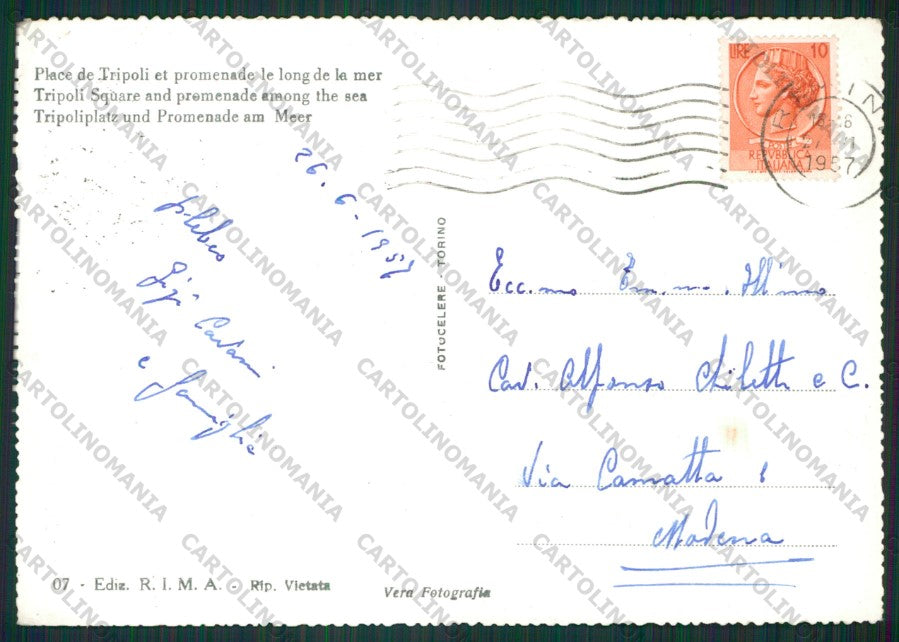 Place de Tripoli et promenade le long de la mer
Tripoli Square and promenade among the sea
Tripoliplatz und Promenade am Meer
26.6-1957
Gigi
e famiglia
FOTOCELERE - TORINO
LIRE 10
POSTE
REPUBBLICA
ITALIANA
1957
Ecc.mo Em.mo Ill.mo
Cav. Alfonso Chiletti e C.
Via Camatta
Modena
07 - Ediz. R. I. M. A. - Rip. Vietata
Vera Fotografia
CARTOLINOMANIA